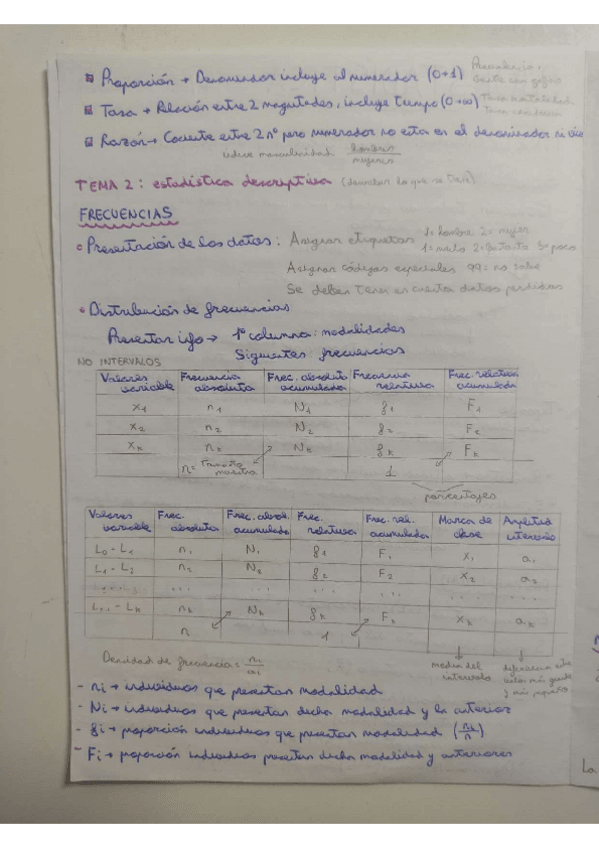 Proporción → Denominador incluye al numerador (0→1) Prevalencia, gente con gafas
Tasa → Relación entre 2 magnitudes, incluye tiempo (0→∞) Tasa mortalidad
Razón → Cociente entre 2 nº pero numerador no esta en el denominador ni
índice masculinidad hombres/mujeres
TEMA 2: estadística descriptiva
FRECUENCIAS
Presentación de los datos: Asignar etiquetas 1= hombre 2= mujer
1= mucho 2= bastante 3= poco
Asignar códigos especiales 99= no sabe
Se deben tener en cuenta datos perdidos
Distribución de frecuencias
Presentar info → 1ª columna: modalidades
Siguientes: frecuencias
NO INTERVALOS
Valores variable Frecuencia absoluta Frec. absoluta acumulada Frecuencia relativa Frec. relativa acumulada
x1 n1 N1 f1 F1
x2 n2 N2 f2 F2
xk nk Nk fk Fk
n= Tamaño muestra 1
porcentajes
Valores variable Frec. absoluta Frec. absol. acumulada Frec. relativa Frec. rel. acumulada Marca de clase Amplitud intervalo
L0 - L1 n1 N1 f1 F1 x1 a1
L1 - L2 n2 N2 f2 F2 x2 a2
... ... ... ... ... ... ...
L... - Lk nk Nk fk Fk xk ak
n 1
Densidad de frecuencia = ni/ai
media del intervalo
diferencia entre valor más grande y más pequeño
- ni → individuos que presentan modalidad
- Ni → individuos que presentan dicha modalidad y la anterior
- fi → proporción individuos que presentan modalidad (ni/n)
- Fi → proporción individuos presentan dicha modalidad y anteriores
La